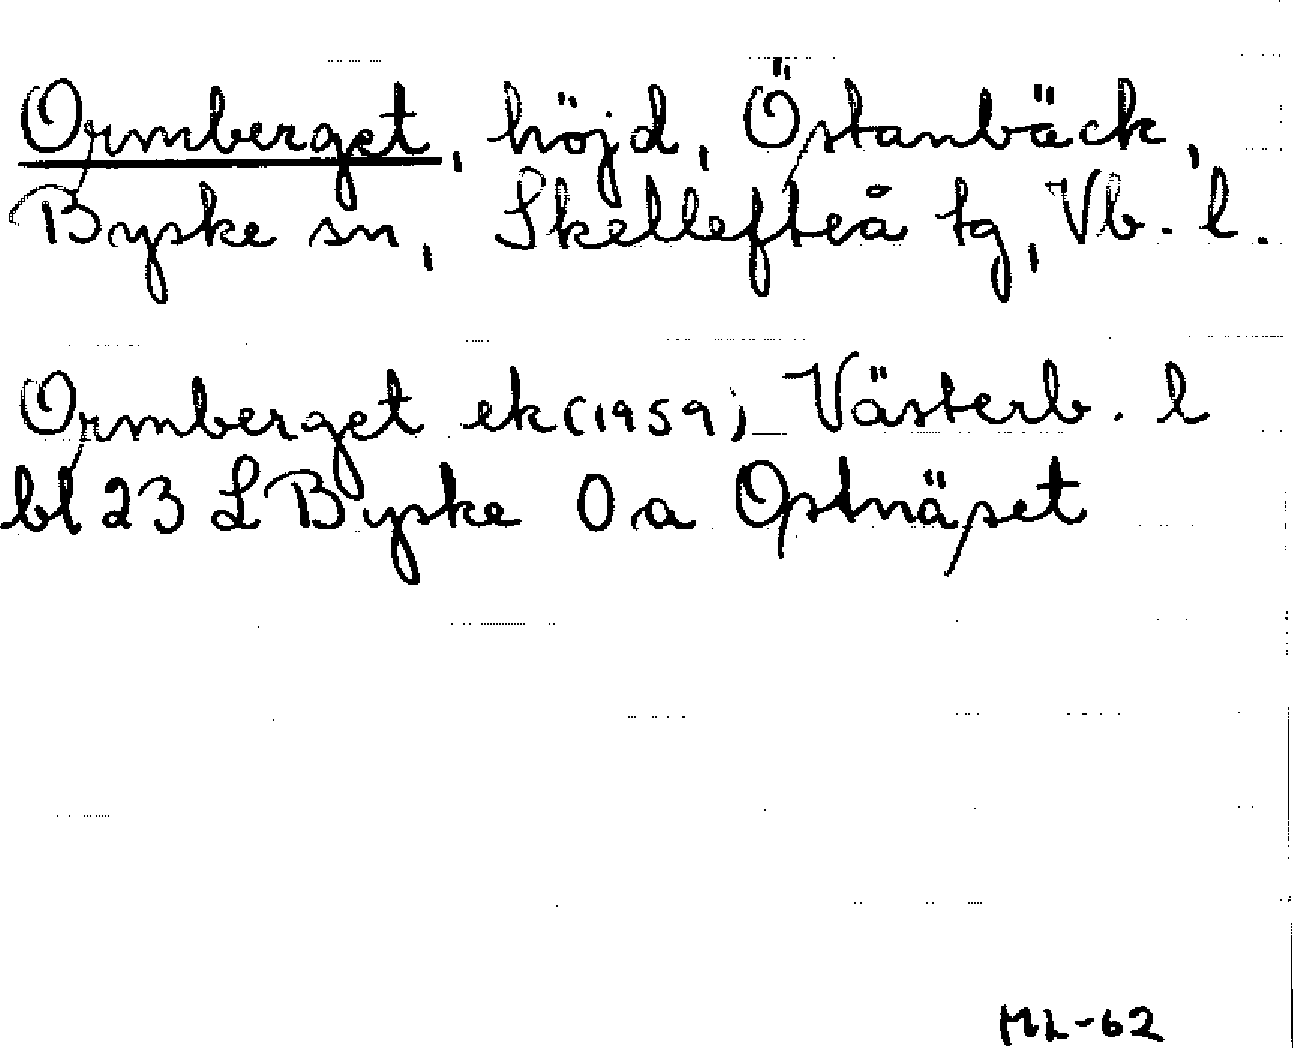 Ormberget, höjd, Östanbäck,
Byske sn, Skellefteå tg, Vb. l.
Ormberget ek (1959) Västerb. l
bl 23 L Byske 0a Ostnäset
ML-62